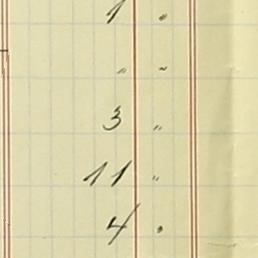 1 "
" "
3 "
11 "
4 "